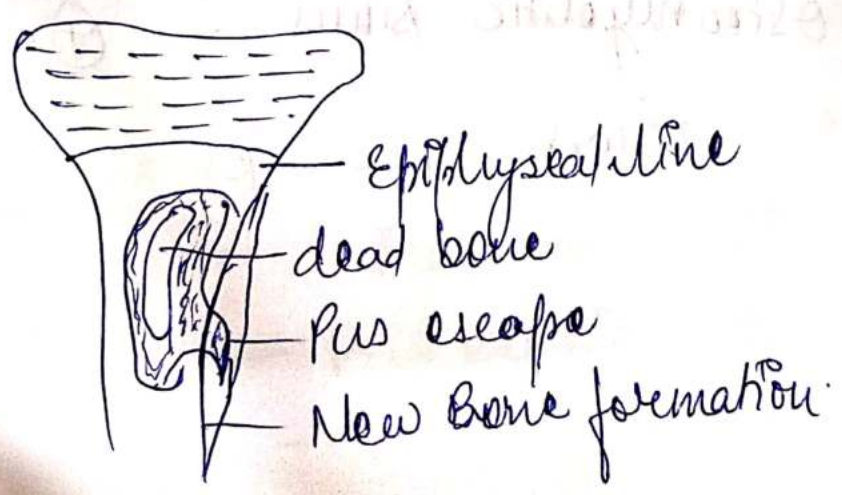 Epiphyseal line
dead bone
Pus escape
New Bone formation.